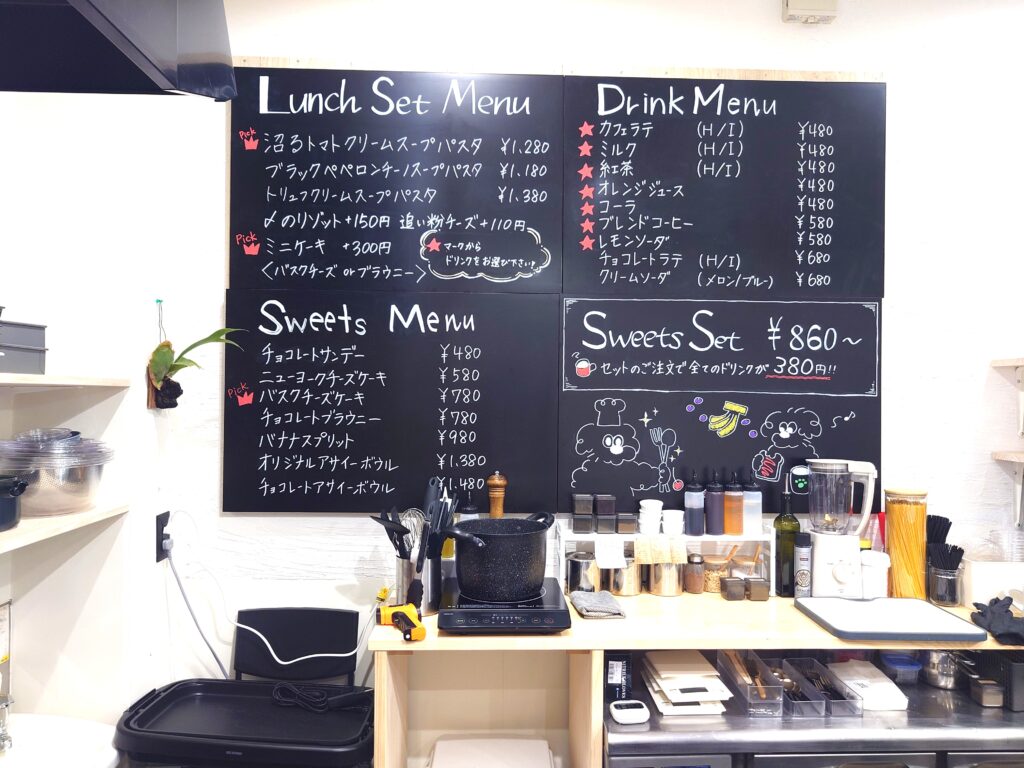 Lunch Set Menu
Pick
沼るトマトクリームスープパスタ ¥1,280
ブラックペペロンチーノスープパスタ ¥1,180
トリュフクリームスープパスタ ¥1,380
〆のリゾット+150円 追い粉チーズ+110円
Pick
ミニケーキ +300円
<バスクチーズ or ブラウニー>
★マークから
ドリンクをお選び下さい!
Drink Menu
★カフェラテ (H/I) ¥480
★ミルク (H/I) ¥480
★紅茶 (H/I) ¥480
★オレンジジュース ¥480
★コーラ ¥480
★ブレンドコーヒー ¥580
★レモンソーダ ¥580
チョコレートラテ (H/I) ¥680
クリームソーダ (メロン/ブルー) ¥680
Sweets Menu
チョコレートサンデー ¥480
ニューヨークチーズケーキ ¥580
Pick
バスクチーズケーキ ¥780
チョコレートブラウニー ¥780
バナナスプリット ¥980
オリジナルアサイーボウル ¥1,380
チョコレートアサイーボウル ¥1,480
Sweets Set ¥860〜
セットのご注文で全てのドリンクが 380円!!